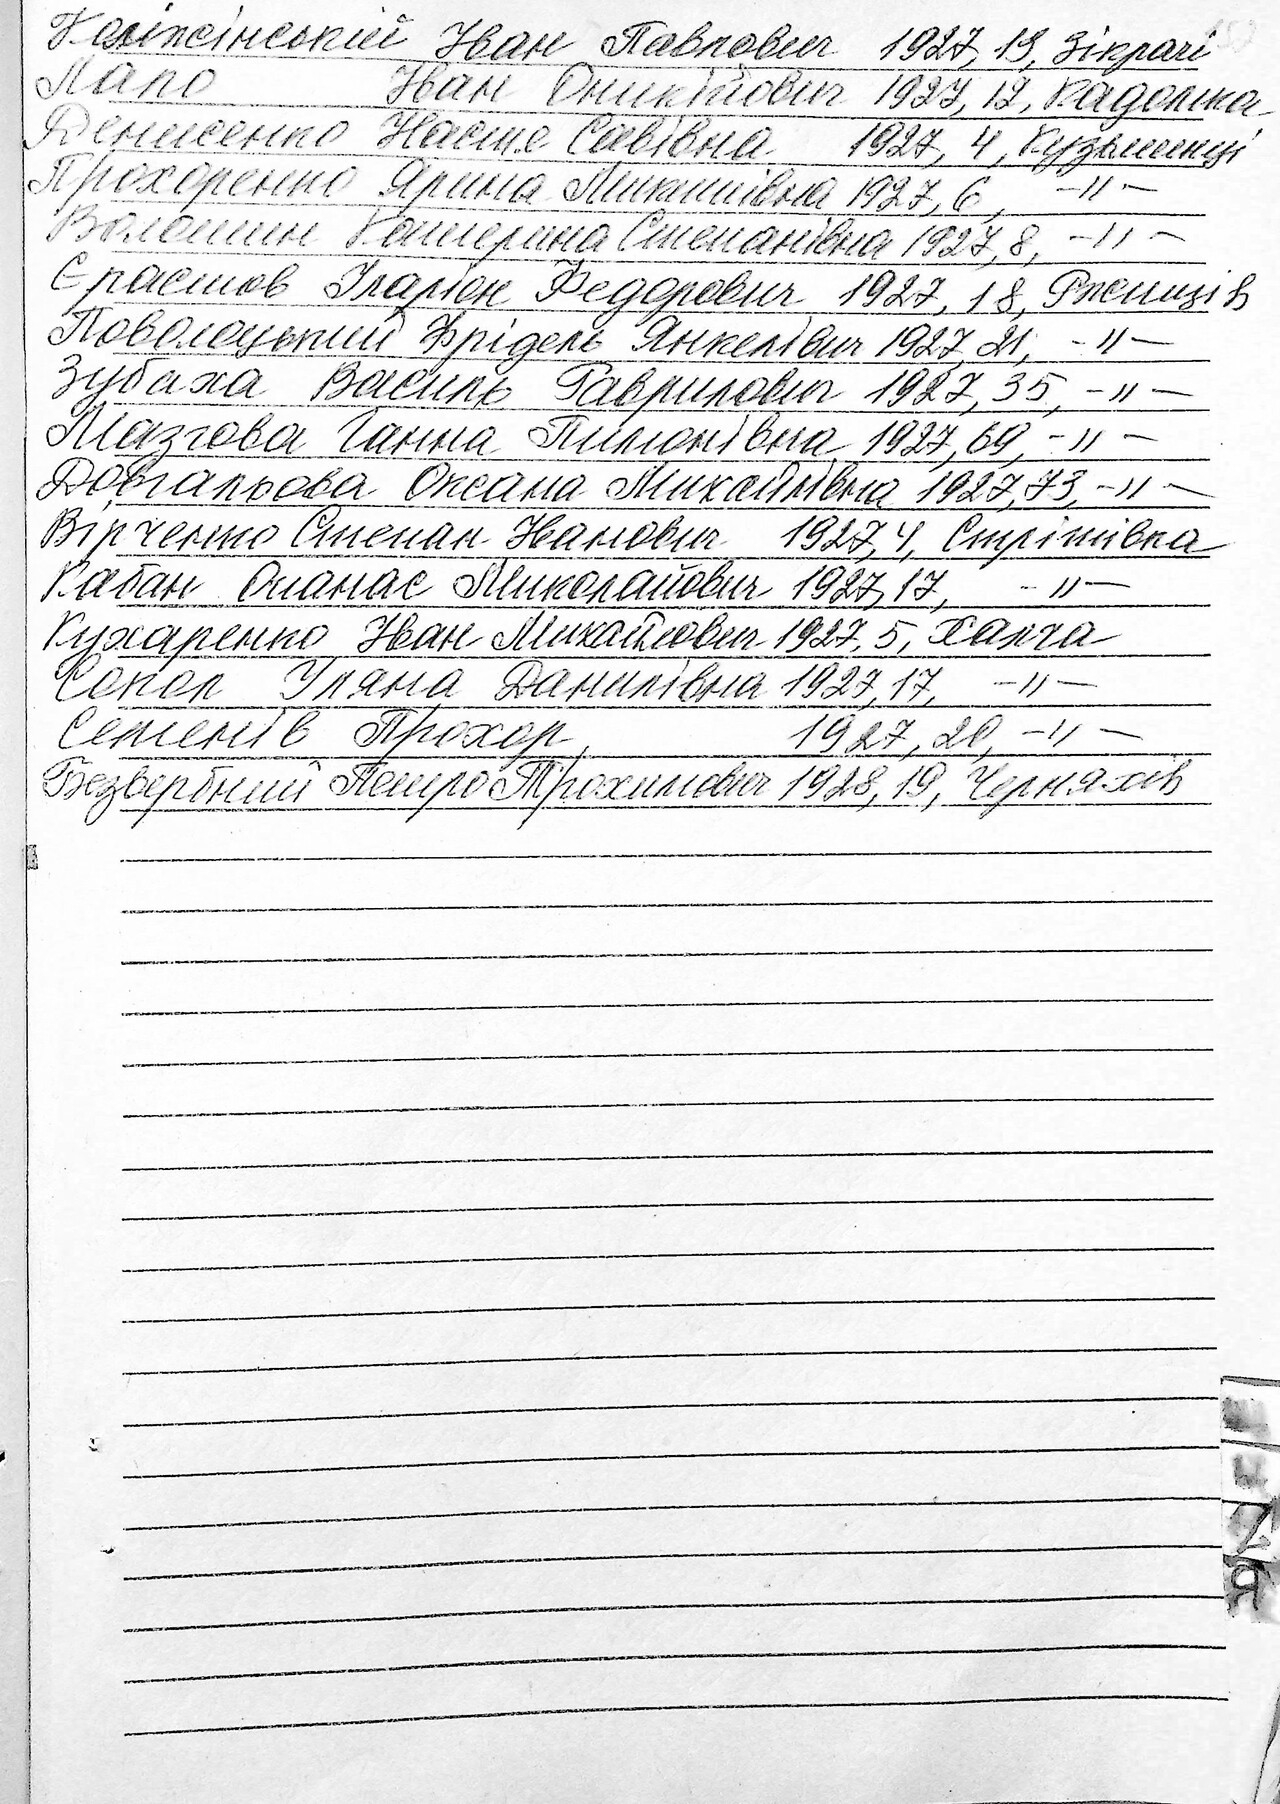 Іван Павлович 1927, 19, Зікрачі
Лапо Іван Оникійович 1927, 12, Кадомка
Денисенко Настя Савівна 1927, 4, Кузьминці
Прохоренко Ярина Микитівна 1927, 6, -"-
Волошин Катерина Степанівна 1927, 8, -"-
Єрастов Іларіон Федорович 1927, 18, Ржищів
Поволоцький Фрідель Янкелівич 1927, 21, -"-
Зубаха Василь Гаврилович 1927, 35, -"-
Мазгова Ганна Пилипівна 1927, 69, -"-
Довгальова Оксана Михайлівна 1927, 73, -"-
Вірченко Степан Іванович 1927, 4, Стрітівка
Кабан Опанас Миколайович 1927, 17, -"-
Кухаренко Іван Михайлович 1927, 5, Халча
Сокол Уляна Данилівна 1927, 17, -"-
Семенів Прохор, 1927, 20, -"-
Безвербний Петро Трохимович 1928, 19, Черняхів
Я